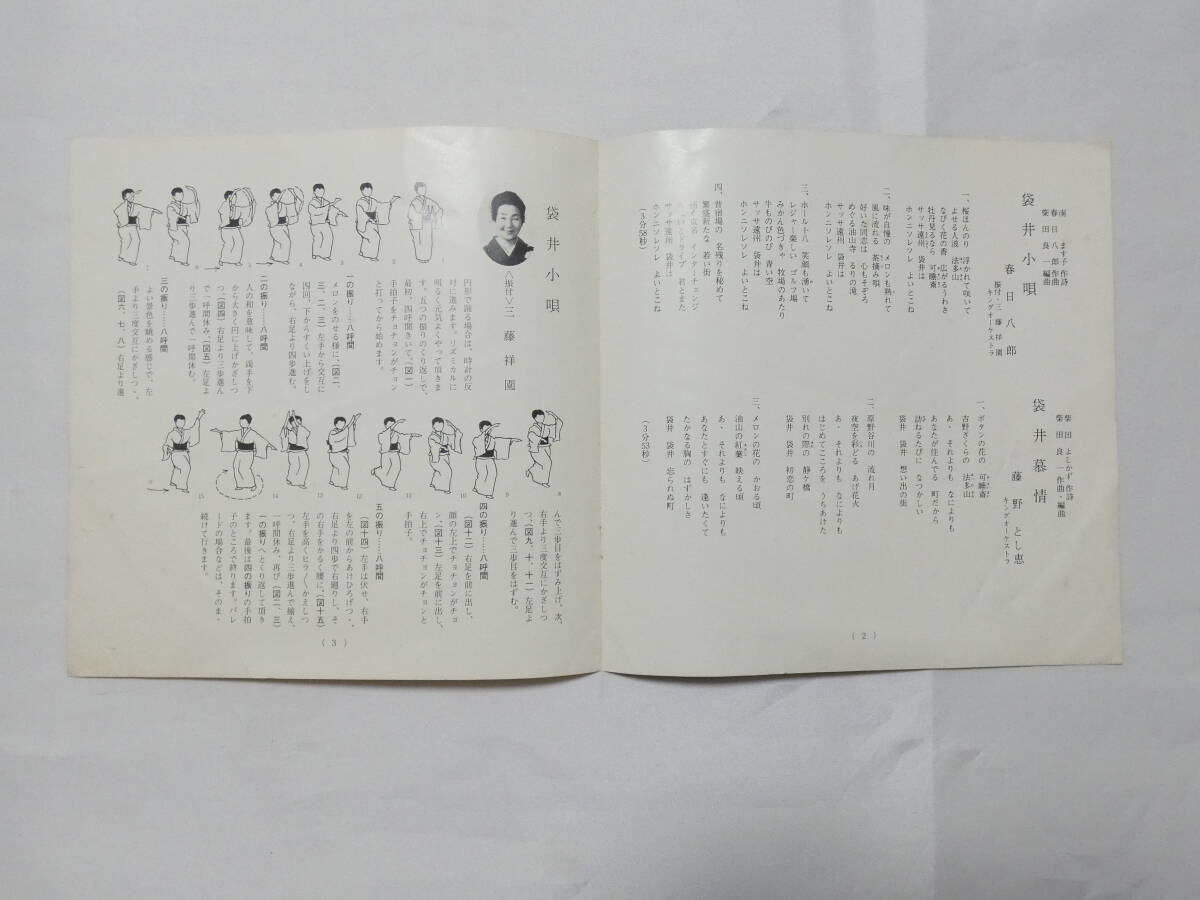 袋井小唄
南 ます子 作詩
春日 八郎 作曲
柴田 良一 編曲
春日八郎
振付・三藤祥園
キングオーケストラ
一、桜ほんのり 浮かれて咲いて
よせる人波 法多山
なびく花の香 広がるうわさ
牡丹見るなら 可睡斎
サッサ遠州 袋井は
ホンニソレソレ よいとこね
二、味が自慢の メロンも熟れて
風に流れる 茶摘み唄
好いた同志は 心もそぞろ
めぐる油山寺 るりの滝
サッサ遠州 袋井は
ホンニソレソレ よいとこね
三、ホール十八 笑顔も湧いて
レジャー楽しい ゴルフ場
みかん色づきゃ 牧場のあたり
牛ものびのび 青い空
サッサ遠州 袋井は
ホンニソレソレ よいとこね
四、昔宿場の 名残りを秘めて
繁盛新たな 若い街
インターチェンジ
ドライブ 君とまた
サッサ遠州 袋井は
ホンニソレソレ よいとこね
(3分58秒)
袋井慕情
柴田 よしかず 作詩
柴田 良一 作曲・編曲
藤野とし恵
キングオーケストラ
一、ボタンの花の 可睡斎
吉野ざくらの 法多山
あゝそれよりも なによりも
あなたが住んでる 町だから
訪ねるたびに なつかしい
袋井 袋井 想い出の街
二、原野谷川の 流れ月
夜空を彩どる あげ花火
あゝそれよりも なによりも
はじめてこころを うちあけた
別れの際の 静ヶ橋
袋井 袋井 初恋の町
三、メロンの花の かおる頃
油山の紅葉 映える頃
あゝそれよりも なによりも
あなたとすぐにも 逢いたくて
たかなる胸の はずかしさ
袋井 袋井 忘られぬ町
(3分53秒)
(2)
袋井小唄
<振付>三藤祥園
円形で踊る場合は、時計の反
対に進みます。リズミカルに
明るく元気よくやって頂きま
す。五つの振りのくり返しで、
最初、四呼聞きいて、(図一)
手拍子をチョチョンがチョン
と打ってから始めます。
一の振り……八呼間
メロンをのせる様に、(図二、
三、二、三)左手から交互に
四回、下からすくい上げをし
ながら、右足より四歩進む。
二の振り……八呼間
人の和を意味して、両手を下
から大きく円に上げかざしつ
つ(図四)右足より三歩進ん
で一呼間休み、(図五)左足よ
り三歩進んで一呼間休む。
三の振り……八呼間
よい景色を眺める感じで、左
手より三度交互にかざしつゝ、
(図六、七、八)右足より進
んで三歩目をはずみ上げ、次、
右手より三度交互にかざしつ
つ、(図九、十、十一)左足よ
り進んで三歩目をはずむ。
四の振り……八呼間
(図十二)右足を前に出し、
顔の左上でチョチョンがチョ
ン、(図十三)左足を前に出し、
右上でチョチョンがチョンと
手拍子。
五の振り……八呼間
(図十四)左手は伏せ、右手
を左の前からあけひろげつゝ、
右足より四歩で右廻りし、そ
の右手をかるく腰に、(図十五)
左手を高くヒラ〱かえしつ
つ、右足より三歩進んで揃え、
一呼間休み、再び(図二、三)
一の振りへとくり返して頂き
ます。最後は四の振りの手拍
子のところで終ります。パレ
ードの場合などは、そのまゝ
続けて行きます。
1
2
3
4
5
6
7
8
9
10
11
12
13
14
15
(3)